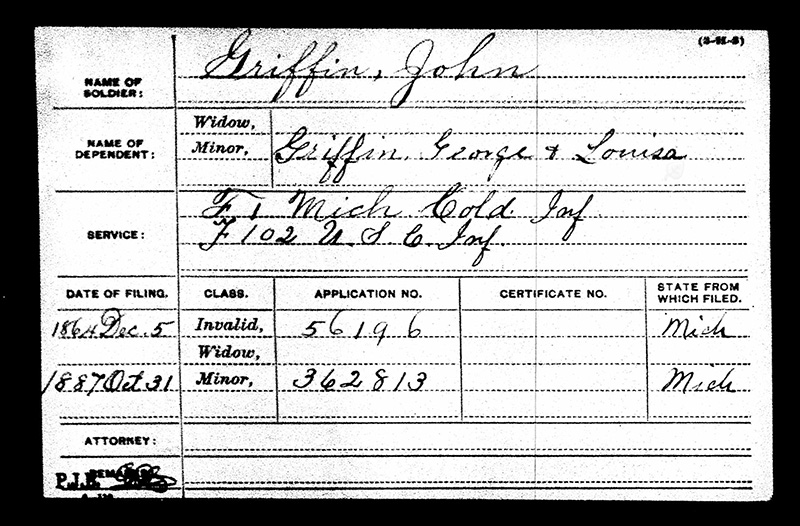 (3-H-5)
NAME OF
SOLDIER:
Griffin, John
NAME OF
DEPENDENT:
Widow,
Minor,
Griffin, George & Louisa
SERVICE:
F 1 Mich Cold. Inf.
F 102 U. S. C. Inf.
DATE OF FILING. CLASS. APPLICATION NO. CERTIFICATE NO. STATE FROM
WHICH FILED.
1864 Dec. 5 Invalid, 56196 Mich
Widow,
1887 Oct 31 Minor, 362813 Mich
ATTORNEY:
REMARKS: